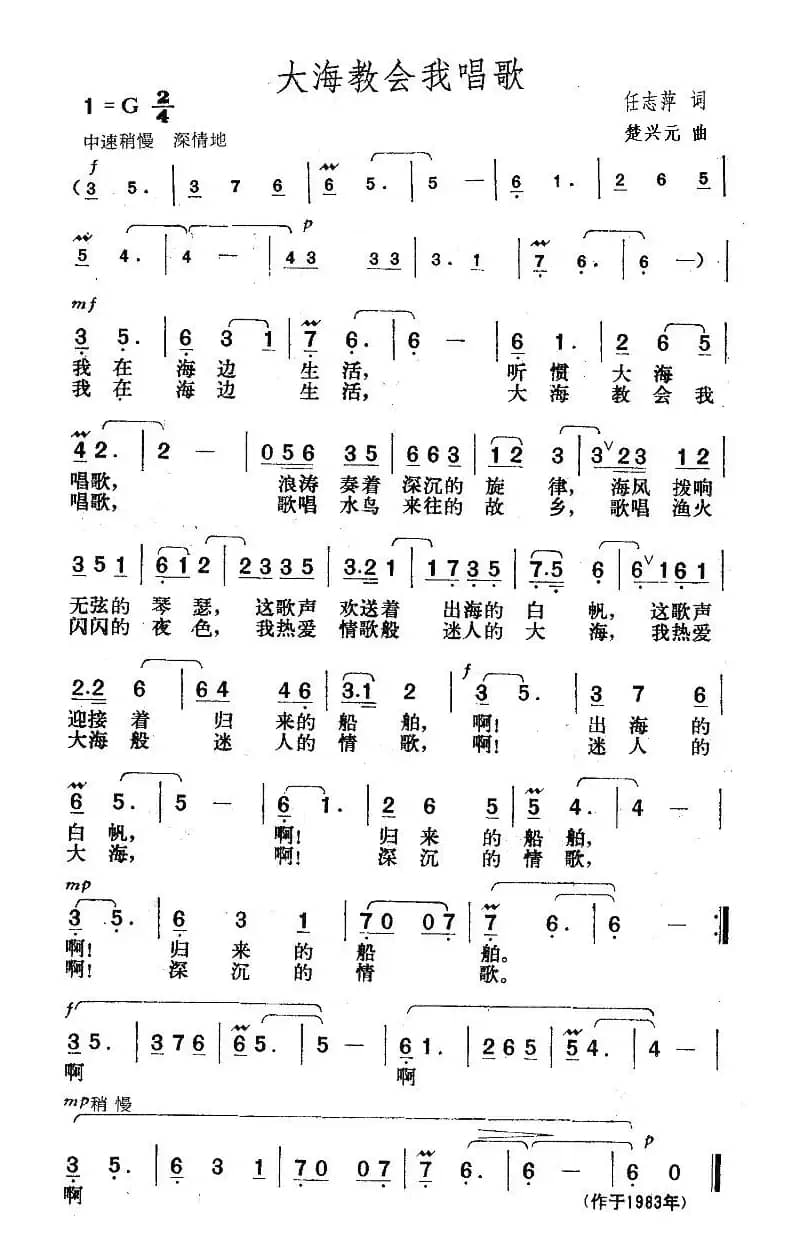 大海教会我唱歌
1=G 2/4
任志萍 词
中速稍慢 深情地
楚兴元 曲
f
(3 5. | 3 7 6 | 6 5. | 5 — | 6 1. | 2 6 5 |
p
5 4. | 4 — | 43 33 | 3. 1 | 7 6. | 6 —) |
mf
3 5. | 6 3 1 | 7 6. | 6 — | 6 1. | 2 6 5 |
我在 海边 生活, 听惯 大海
我在 海边 生活, 大海 教会我
4 2. | 2 — | 056 35 | 663 | 12 3 | 3∨23 12 |
唱歌, 浪涛 奏着 深沉的 旋 律, 海风 拨响
唱歌, 歌唱 水鸟 来往的 故 乡, 歌唱 渔火
351 | 612 | 2335 | 3.21 | 1735 | 7.5 6 | 6∨161 |
无弦的 琴瑟, 这歌声 欢送着 出海的 白 帆, 这歌声
闪闪的 夜色, 我热爱 情歌般 迷人的 大 海, 我热爱
f
2.2 6 | 64 46 | 3.1 2 | 3 5. | 3 7 6 |
迎接着 归 来的 船 舶, 啊! 出海的
大海般 迷 人的 情 歌, 啊! 迷人的
6 5. | 5 — | 6 1. | 2 6 5 | 5 4. | 4 — |
白帆, 啊! 归来的船舶,
大海, 啊! 深沉的情歌,
mp
3 5. | 6 3 1 | 70 07 | 7 6. | 6 — :|
啊! 归来的船 舶。
啊! 深沉的情 歌。
f
35. | 376 | 65. | 5 — | 61. | 265 | 54. | 4 — |
啊 啊
mp 稍慢
p
3 5. | 6 3 1 | 70 07 | 7 6. | 6 — | 6 0 |
啊
(作于1983年)